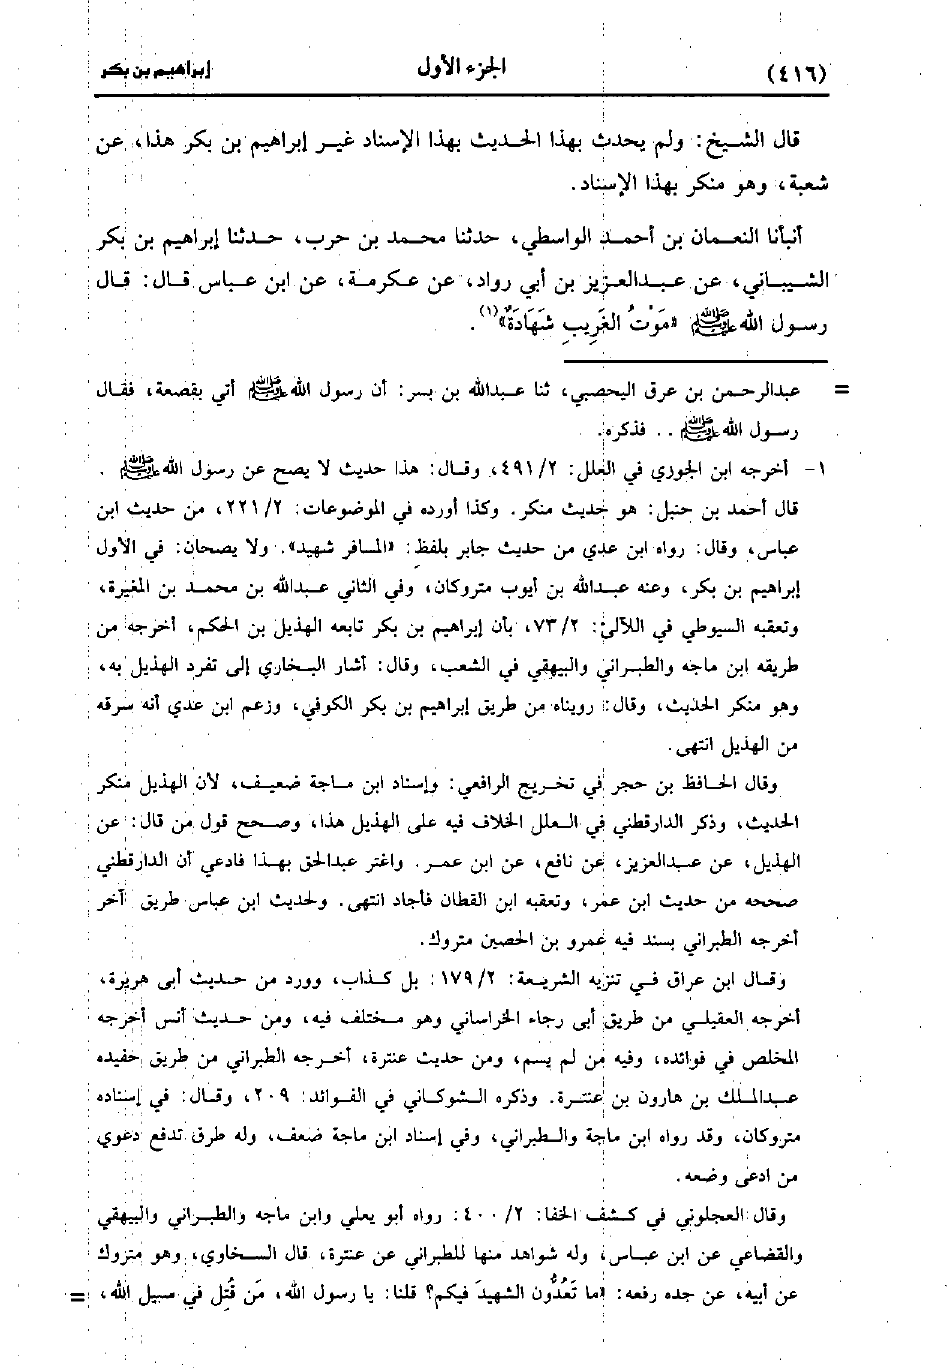 (٤١٦) الجزء الأول إبراهيم بن بكر
قال الشيخ: ولم يحدث بهذا الحديث بهذا الإسناد غير إبراهيم بن بكر هذا، عن
شعبة، وهو منكر بهذا الإسناد.
أنبأنا النعمان بن أحمد الواسطي، حدثنا محمد بن حرب، حدثنا إبراهيم بن بكر
الشيباني، عن عبدالعزيز بن أبي رواد، عن عكرمة، عن ابن عباس قال: قال
رسول الله ﷺ «مَوْتُ الغَرِيبِ شَهَادَةٌ»(١).
= عبدالرحمن بن عرق اليحصبي، ثنا عبدالله بن بسر: أن رسول الله ﷺ أتي بقصعة، فقال
رسول الله ﷺ .. فذكره.
١- أخرجه ابن الجوزي في العلل: ٤٩١/٢، وقال: هذا حديث لا يصح عن رسول الله ﷺ .
قال أحمد بن حنبل: هو حديث منكر. وكذا أورده في الموضوعات: ٢٢١/٢، من حديث ابن
عباس، وقال: رواه ابن عدي من حديث جابر بلفظ: «المسافر شهيد». ولا يصحان: في الأول
إبراهيم بن بكر، وعنه عبدالله بن أيوب متروكان، وفي الثاني عبدالله بن محمد بن المغيرة،
وتعقبه السيوطي في اللآلئ: ٧٣/٢، بأن إبراهيم بن بكر تابعه الهذيل بن الحكم، أخرجه من
طريقه ابن ماجه والطبراني والبيهقي في الشعب، وقال: أشار البخاري إلى تفرد الهذيل به،
وهو منكر الحديث، وقال: رويناه من طريق إبراهيم بن بكر الكوفي، وزعم ابن عدي أنه سرقه
من الهذيل انتهى.
وقال الحافظ بن حجر في تخريج الرافعي: وإسناد ابن ماجة ضعيف، لأن الهذيل منكر
الحديث، وذكر الدارقطني في العلل الخلاف فيه على الهذيل هذا، وصحح قول من قال: عن
الهذيل، عن عبدالعزيز، عن نافع، عن ابن عمر. واغتر عبدالحق بهذا فادعي أن الدارقطني
صححه من حديث ابن عمر، وتعقبه ابن القطان فأجاد انتهى. ولحديث ابن عباس طريق آخر
أخرجه الطبراني بسند فيه عمرو بن الحصين متروك.
وقال ابن عراق في تنزيه الشريعة: ١٧٩/٢: بل كذاب، وورد من حديث أبى هريرة،
أخرجه العقيلي من طريق أبى رجاء الخراساني وهو مختلف فيه، ومن حديث أنس أخرجه
المخلص في فوائده، وفيه من لم يسم، ومن حديث عنترة، أخرجه الطبراني من طريق حفيده
عبدالملك بن هارون بن عنترة. وذكره الشوكاني في الفوائد: ٢٠٩، وقال: في إسناده
متروكان، وقد رواه ابن ماجة والطبراني، وفي إسناد ابن ماجة ضعف، وله طرق تدفع دعوي
من ادعى وضعه.
وقال العجلوني في كشف الخفا: ٤٠٠/٢: رواه أبو يعلي وابن ماجه والطبراني والبيهقي
والقضاعي عن ابن عباس، وله شواهد منها للطبراني عن عنترة، قال السخاوي، وهو متروك
عن أبيه، عن جده رفعه: «ما تَعُدُّون الشهيدَ فيكم؟ قلنا: يا رسول الله، مَن قُتل في سبيل الله، =